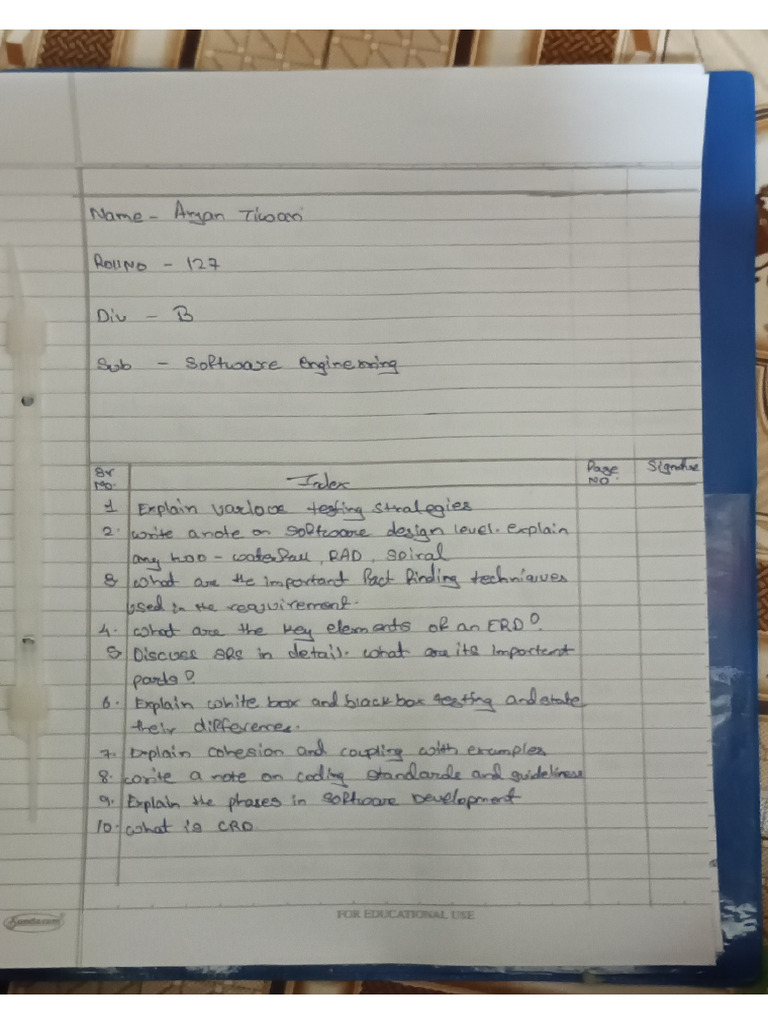 Name - Aryan Tiwari
Roll No - 127
Div - B
Sub - Software Engineering
Sr No. Index Page No. Signature
1 Explain various testing strategies
2. Write a note on software design level. explain
any two - waterfall, RAD, Spiral
3 What are the important fact finding techniques
used in the requirement.
4. What are the key elements of an ERD?
5 Discuss SRS in detail. what are its important
parts?
6. Explain white box and black box testing and state
their differences.
7. Explain cohesion and coupling with examples
8. Write a note on coding standards and guidelines
9. Explain the phases in software Development
10. What is CRD.
FOR EDUCATIONAL USE